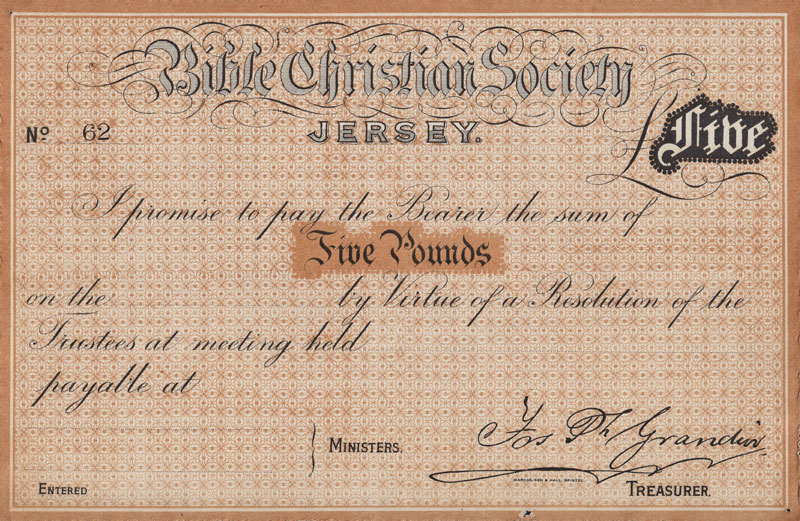 Bible Christian Society
JERSEY.
Nº 62
£ Five
I promise to pay the Bearer the sum of
Five Pounds
on the by Virtue of a Resolution of the
Trustees at meeting held
payable at
MINISTERS.
Jos Ph Grandin
ENTERED
TREASURER.